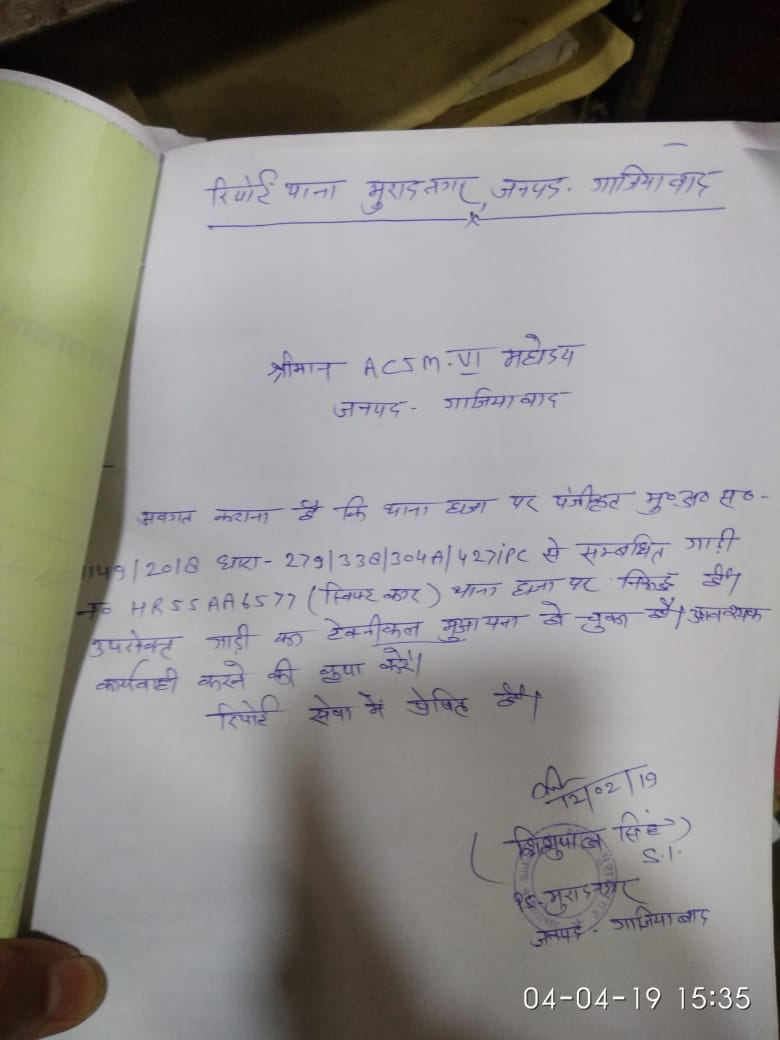 रिपोर्ट थाना मुरादनगर, जनपद- गाजियाबाद
श्रीमान ACJM-VI महोदय
जनपद - गाजियाबाद
अवगत कराना है कि थाना हाजा पर पंजीकृत मु०अ० स०-
1149/2018 धारा - 279/338/304A/427IPC से सम्बधित गाड़ी
न० HR55AA6577 (स्विफ्ट कार) थाना हाजा पर है।
उपरोक्त गाड़ी का टेक्नीकल मुआयना हो चुका है। आवश्यक
कार्यवाही करने की कृपा करें।
रिपोर्ट सेवा में प्रेषित है।
12/02/19
(शिशुपाल सिंह)
S.I.
PS-मुरादनगर
जनपद - गाजियाबाद
04-04-19 15:35